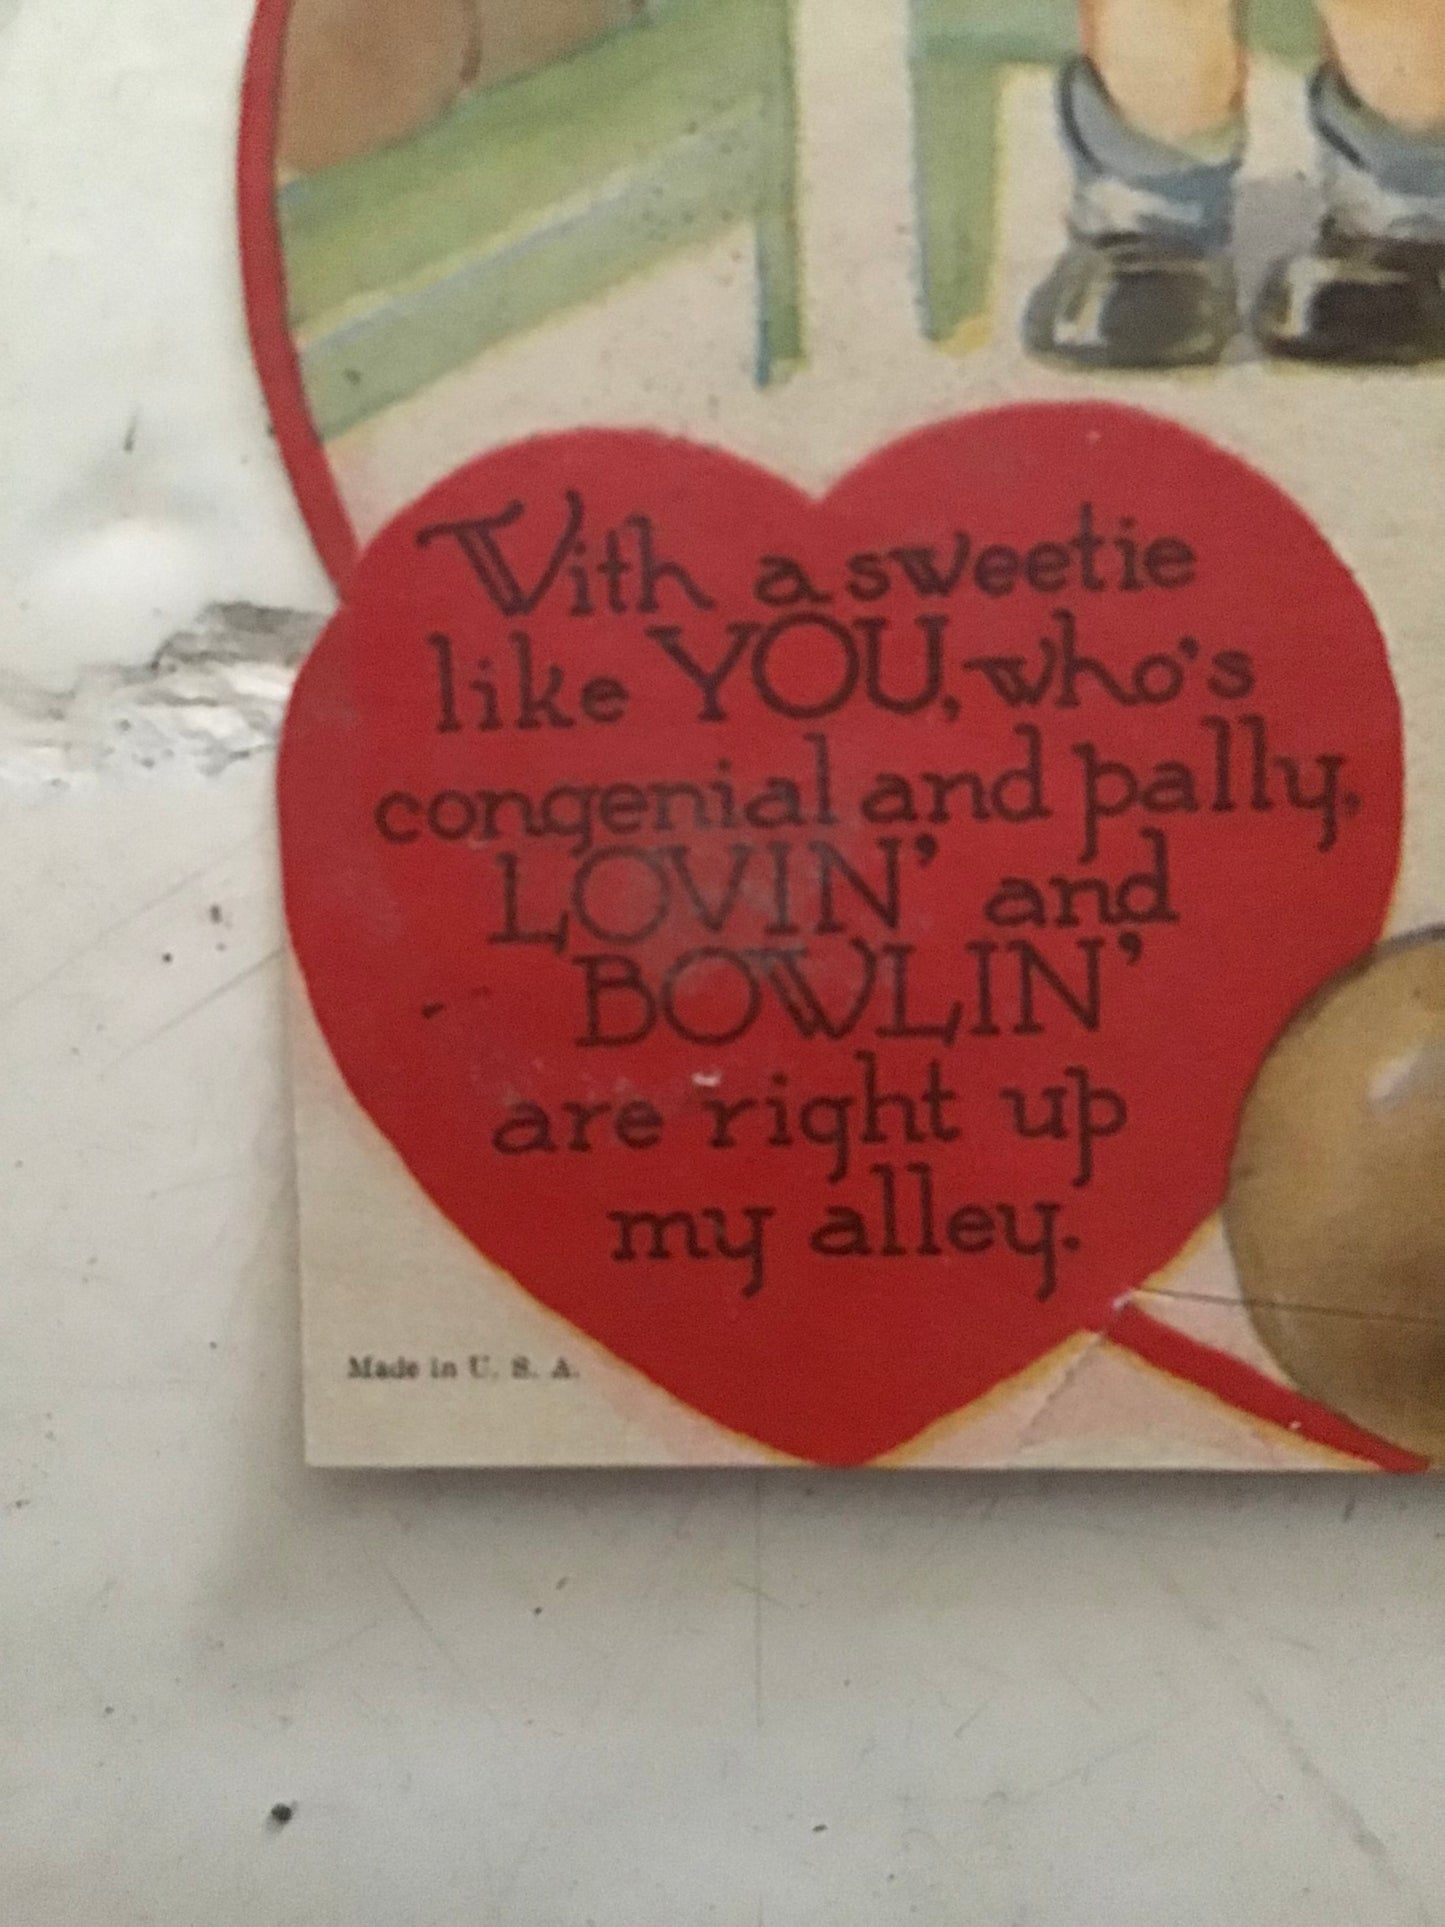 With a sweetie
like YOU, who's
congenial and pally,
LOVIN' and
BOWLIN'
are right up
my alley.
Made in U. S. A.